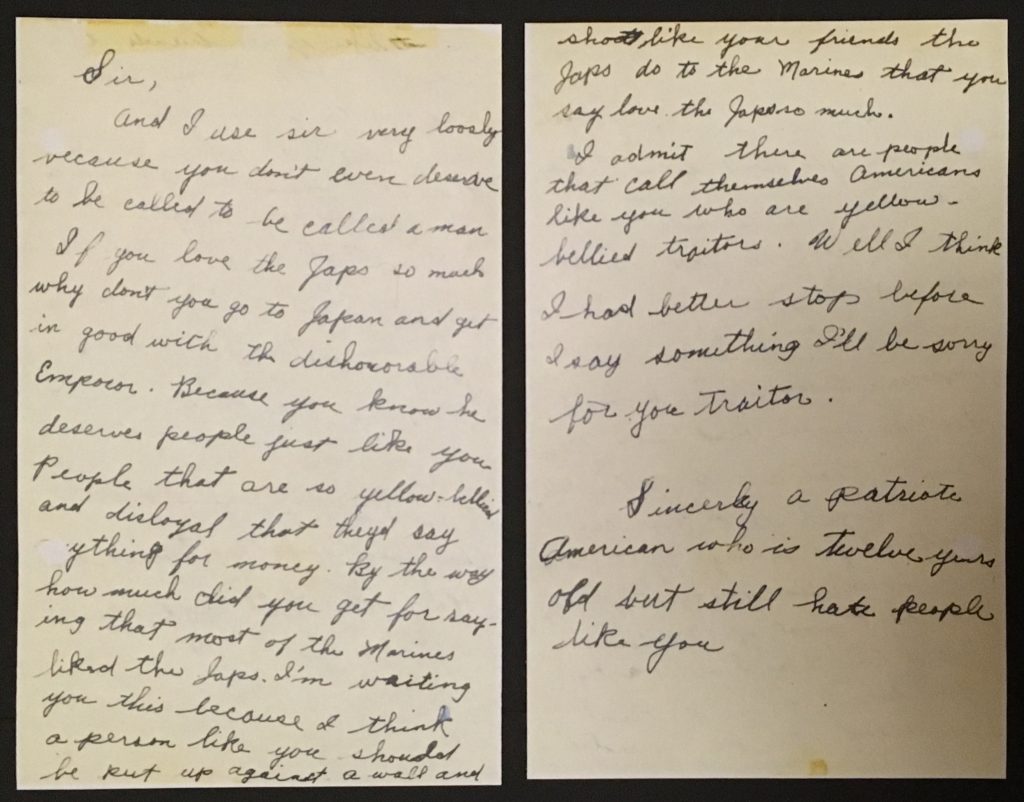 Sir,
And I use sir very loosly
vecause you don't even deserve
to be called to be called a man
If you love the Japs so much
why don't you go to Japan and get
in good with the dishonorable
Emporor. Because you know he
deserves people just like you
People that are so yellow-bellied
and disloyal that theyd say
ything for money. By the way
how much did you get for say-
ing that most of the Marines
liked the Japs. I'm writing
you this because I think
a person like you should
be put up against a wall and
shoot like your friends the
Japs do to the Marines that you
say love the Japs so much.
I admit there are people
that call themselves Americans
like you who are yellow-
bellied traitors. Well I think
I had better stop before
I say something I'll be sorry
for you traitor.
Sincerly a patriotic
American who is twelve years
old but still hate people
like you